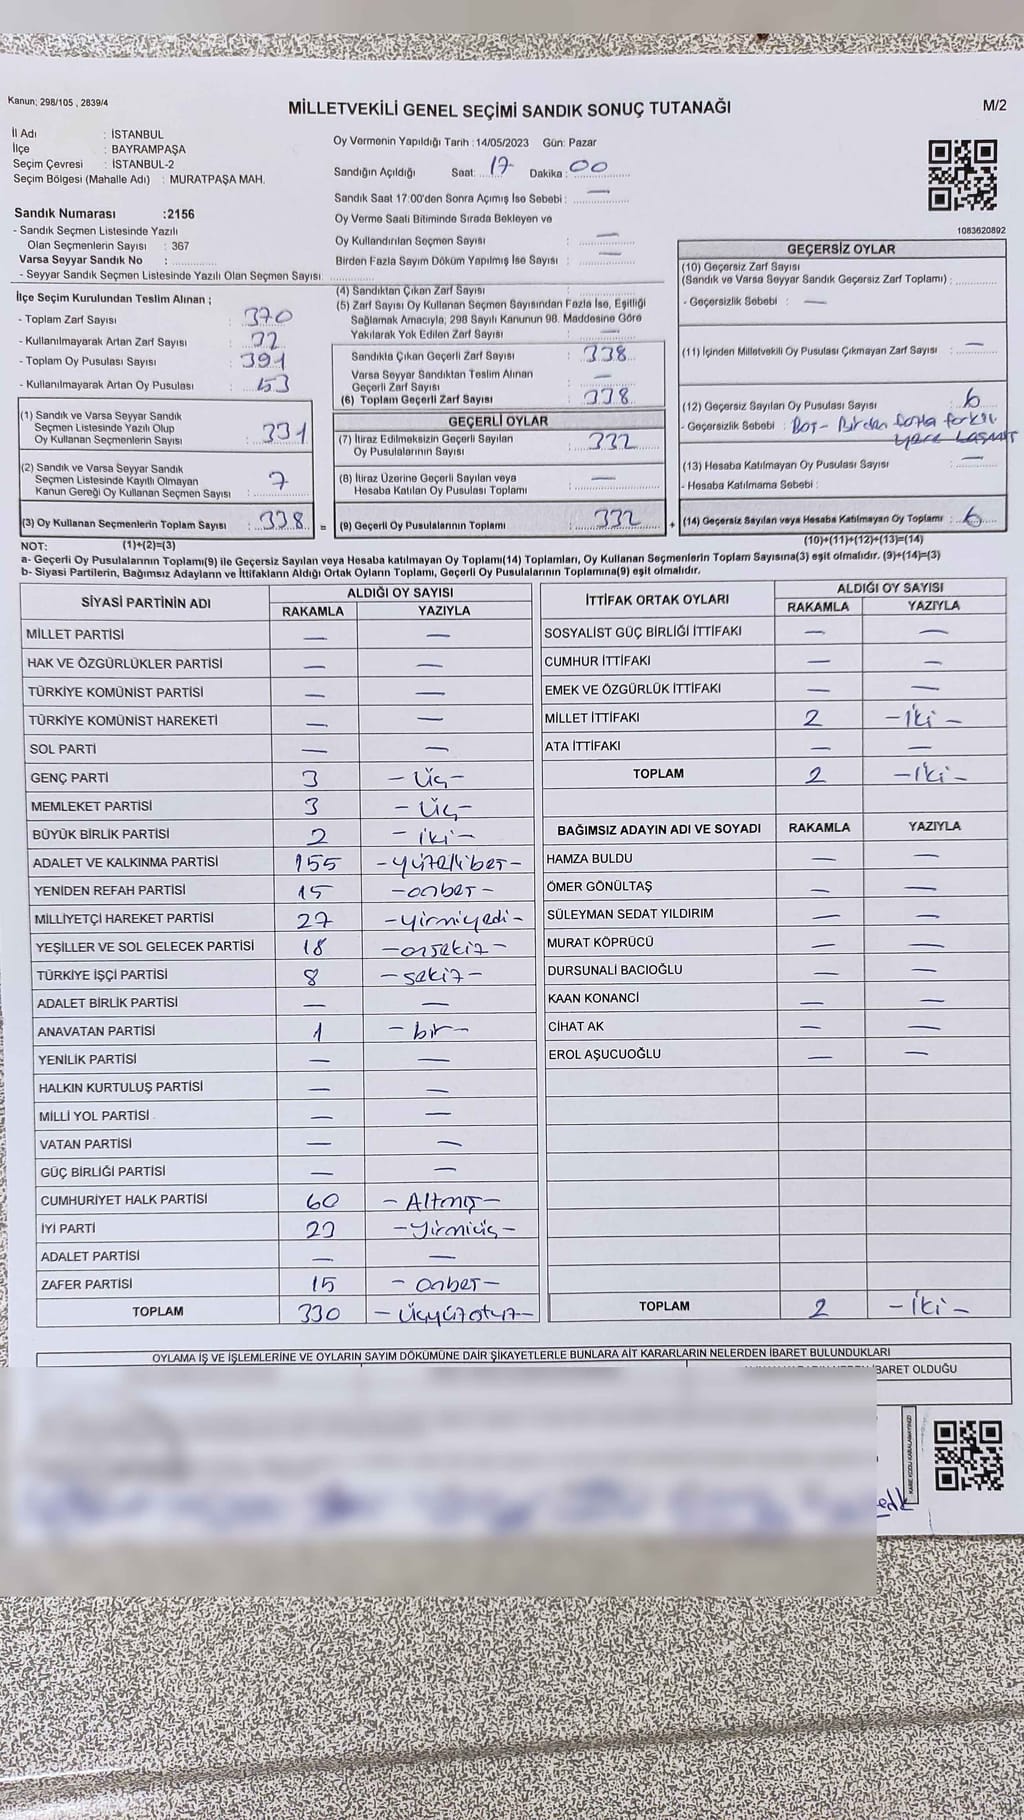 Kanun; 298/105 , 2839/4
MİLLETVEKİLİ GENEL SEÇİMİ SANDIK SONUÇ TUTANAĞI
M/2
İl Adı : İSTANBUL
İlçe : BAYRAMPAŞA
Seçim Çevresi : İSTANBUL-2
Seçim Bölgesi (Mahalle Adı) : MURATPAŞA MAH.
Sandık Numarası :2156
- Sandık Seçmen Listesinde Yazılı
Olan Seçmenlerin Sayısı : 367
Varsa Seyyar Sandık No :
- Seyyar Sandık Seçmen Listesinde Yazılı Olan Seçmen Sayısı:
Oy Vermenin Yapıldığı Tarih : 14/05/2023 Gün: Pazar
Sandığın Açıldığı Saat: 17 Dakika : 00
Sandık Saat 17:00'den Sonra Açımış İse Sebebi : —
Oy Verme Saati Bitiminde Sırada Bekleyen ve
Oy Kullandırılan Seçmen Sayısı : —
Birden Fazla Sayım Döküm Yapılmış İse Sayısı : —
1083620892
İlçe Seçim Kurulundan Teslim Alınan ;
- Toplam Zarf Sayısı : 370
- Kullanılmayarak Artan Zarf Sayısı : 32
- Toplam Oy Pusulası Sayısı : 391
- Kullanılmayarak Artan Oy Pusulası : 53
(1) Sandık ve Varsa Seyyar Sandık
Seçmen Listesinde Yazılı Olup
Oy Kullanan Seçmenlerin Sayısı : 331
(2) Sandık ve Varsa Seyyar Sandık
Seçmen Listesinde Kayıtlı Olmayan
Kanun Gereği Oy Kullanan Seçmen Sayısı : 7
(3) Oy Kullanan Seçmenlerin Toplam Sayısı : 338 =
(4) Sandıktan Çıkan Zarf Sayısı :
(5) Zarf Sayısı Oy Kullanan Seçmen Sayısından Fazla İse, Eşitliği
Sağlamak Amacıyla; 298 Sayılı Kanunun 98. Maddesine Göre
Yakılarak Yok Edilen Zarf Sayısı : —
Sandıkta Çıkan Geçerli Zarf Sayısı : 338
Varsa Seyyar Sandıktan Teslim Alınan
Geçerli Zarf Sayısı : —
(6) Toplam Geçerli Zarf Sayısı : 338
GEÇERLİ OYLAR
(7) İtiraz Edilmeksizin Geçerli Sayılan
Oy Pusulalarının Sayısı : 332
(8) İtiraz Üzerine Geçerli Sayılan veya
Hesaba Katılan Oy Pusulası Toplamı : —
(9) Geçerli Oy Pusulalarının Toplamı : 332 +
GEÇERSİZ OYLAR
(10) Geçersiz Zarf Sayısı
(Sandık ve Varsa Seyyar Sandık Geçersiz Zarf Toplamı) :
- Geçersizlik Sebebi : —
(11) İçinden Milletvekili Oy Pusulası Çıkmayan Zarf Sayısı : —
(12) Geçersiz Sayılan Oy Pusulası Sayısı : 6
- Geçersizlik Sebebi : Boş - Birden fazla farklı
yere
(13) Hesaba Katılmayan Oy Pusulası Sayısı : —
- Hesaba Katılmama Sebebi :
(14) Geçersiz Sayılan veya Hesaba Katılmayan Oy Toplamı : 6
NOT: (1)+(2)=(3)
(10)+(11)+(12)+(13)=(14)
a- Geçerli Oy Pusulalarının Toplamı(9) ile Geçersiz Sayılan veya Hesaba katılmayan Oy Toplamı(14) Toplamları, Oy Kullanan Seçmenlerin Toplam Sayısına(3) eşit olmalıdır. (9)+(14)=(3)
b- Siyasi Partilerin, Bağımsız Adayların ve İttifakların Aldığı Ortak Oyların Toplamı, Geçerli Oy Pusulalarının Toplamına(9) eşit olmalıdır.
SİYASİ PARTİNİN ADI ALDIĞI OY SAYISI
RAKAMLA YAZIYLA
MİLLET PARTİSİ — —
HAK VE ÖZGÜRLÜKLER PARTİSİ — —
TÜRKİYE KOMÜNİST PARTİSİ — —
TÜRKİYE KOMÜNİST HAREKETİ — —
SOL PARTİ — —
GENÇ PARTİ 3 - Üç -
MEMLEKET PARTİSİ 3 - Üç -
BÜYÜK BİRLİK PARTİSİ 2 - iki -
ADALET VE KALKINMA PARTİSİ 155 - yüzellibeş -
YENİDEN REFAH PARTİSİ 15 - onbeş -
MİLLİYETÇİ HAREKET PARTİSİ 27 - yirmiyedi -
YEŞİLLER VE SOL GELECEK PARTİSİ 18 - onsekiz -
TÜRKİYE İŞÇİ PARTİSİ 8 - sekiz -
ADALET BİRLİK PARTİSİ — —
ANAVATAN PARTİSİ 1 - bir -
YENİLİK PARTİSİ — —
HALKIN KURTULUŞ PARTİSİ — —
MİLLİ YOL PARTİSİ — —
VATAN PARTİSİ — —
GÜÇ BİRLİĞİ PARTİSİ — —
CUMHURİYET HALK PARTİSİ 60 - Altmış -
İYİ PARTİ 23 - Yirmiüç -
ADALET PARTİSİ — —
ZAFER PARTİSİ 15 - onbeş -
TOPLAM 330 - Üçyüzotuz -
İTTİFAK ORTAK OYLARI ALDIĞI OY SAYISI
RAKAMLA YAZIYLA
SOSYALİST GÜÇ BİRLİĞİ İTTİFAKI — —
CUMHUR İTTİFAKI — —
EMEK VE ÖZGÜRLÜK İTTİFAKI — —
MİLLET İTTİFAKI 2 - İki -
ATA İTTİFAKI — —
TOPLAM 2 - İki -
BAĞIMSIZ ADAYIN ADI VE SOYADI RAKAMLA YAZIYLA
HAMZA BULDU — —
ÖMER GÖNÜLTAŞ — —
SÜLEYMAN SEDAT YILDIRIM — —
MURAT KÖPRÜCÜ — —
DURSUNALİ BACIOĞLU — —
KAAN KONANCİ — —
CİHAT AK — —
EROL AŞUCUOĞLU — —
TOPLAM 2 - İki -
OYLAMA İŞ VE İŞLEMLERİNE VE OYLARIN SAYIM DÖKÜMÜNE DAİR ŞİKAYETLERLE BUNLARA AİT KARARLARIN NELERDEN İBARET BULUNDUKLARI
İBARET OLDUĞU